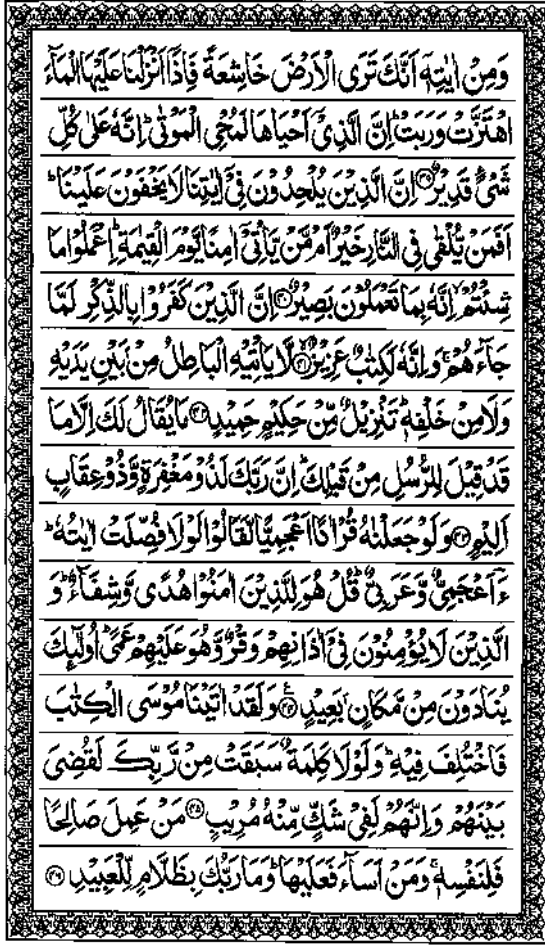 وَمِنْ اٰيٰتِهٖۤ اَنَّكَ تَرَى الْاَرْضَ خَاشِعَةً فَاِذَاۤ اَنْزَلْنَا عَلَيْهَا الْمَآءَ
اهْتَزَّتْ وَرَبَتْ ؕ اِنَّ الَّذِيْۤ اَحْيَاهَا لَمُحْيِ الْمَوْتٰى ؕ اِنَّهٗ عَلٰى كُلِّ
شَيْءٍ قَدِيْرٌ ۟۳۹ اِنَّ الَّذِيْنَ يُلْحِدُوْنَ فِيْۤ اٰيٰتِنَا لَا يَخْفَوْنَ عَلَيْنَا ؕ
اَفَمَنْ يُّلْقٰى فِي النَّارِ خَيْرٌ اَمْ مَّنْ يَّاْتِيْۤ اٰمِنًا يَّوْمَ الْقِيٰمَةِ ؕ اِعْمَلُوْا مَا
شِئْتُمْ ۙ اِنَّهٗ بِمَا تَعْمَلُوْنَ بَصِيْرٌ ۟۴۰ اِنَّ الَّذِيْنَ كَفَرُوْا بِالذِّكْرِ لَمَّا
جَآءَهُمْ ۚ وَاِنَّهٗ لَكِتٰبٌ عَزِيْزٌ ۟ۙ۴۱ لَّا يَاْتِيْهِ الْبَاطِلُ مِنْۢ بَيْنِ يَدَيْهِ
وَلَا مِنْ خَلْفِهٖ ؕ تَنْزِيْلٌ مِّنْ حَكِيْمٍ حَمِيْدٍ ۟۴۲ مَا يُقَالُ لَكَ اِلَّا مَا
قَدْ قِيْلَ لِلرُّسُلِ مِنْ قَبْلِكَ ؕ اِنَّ رَبَّكَ لَذُوْ مَغْفِرَةٍ وَّذُوْ عِقَابٍ
اَلِيْمٍ ۟۴۳ وَلَوْ جَعَلْنٰهُ قُرْاٰنًا اَعْجَمِيًّا لَّقَالُوْا لَوْلَا فُصِّلَتْ اٰيٰتُهٗ ؕ
ءَاَعْجَمِيٌّ وَّعَرَبِيٌّ ؕ قُلْ هُوَ لِلَّذِيْنَ اٰمَنُوْا هُدًى وَّشِفَآءٌ ؕ وَ
الَّذِيْنَ لَا يُؤْمِنُوْنَ فِيْۤ اٰذَانِهِمْ وَقْرٌ وَّهُوَ عَلَيْهِمْ عَمًى ؕ اُولٰٓئِكَ
يُنَادَوْنَ مِنْ مَّكَانٍۢ بَعِيْدٍ ۟۴۴ وَلَقَدْ اٰتَيْنَا مُوْسَى الْكِتٰبَ
فَاخْتُلِفَ فِيْهِ ؕ وَلَوْلَا كَلِمَةٌ سَبَقَتْ مِنْ رَّبِّكَ لَقُضِيَ
بَيْنَهُمْ ؕ وَاِنَّهُمْ لَفِيْ شَكٍّ مِّنْهُ مُرِيْبٍ ۟۴۵ مَنْ عَمِلَ صَالِحًا
فَلِنَفْسِهٖ ۚ وَمَنْ اَسَآءَ فَعَلَيْهَا ؕ وَمَا رَبُّكَ بِظَلَّامٍ لِّلْعَبِيْدِ ۟۴۶